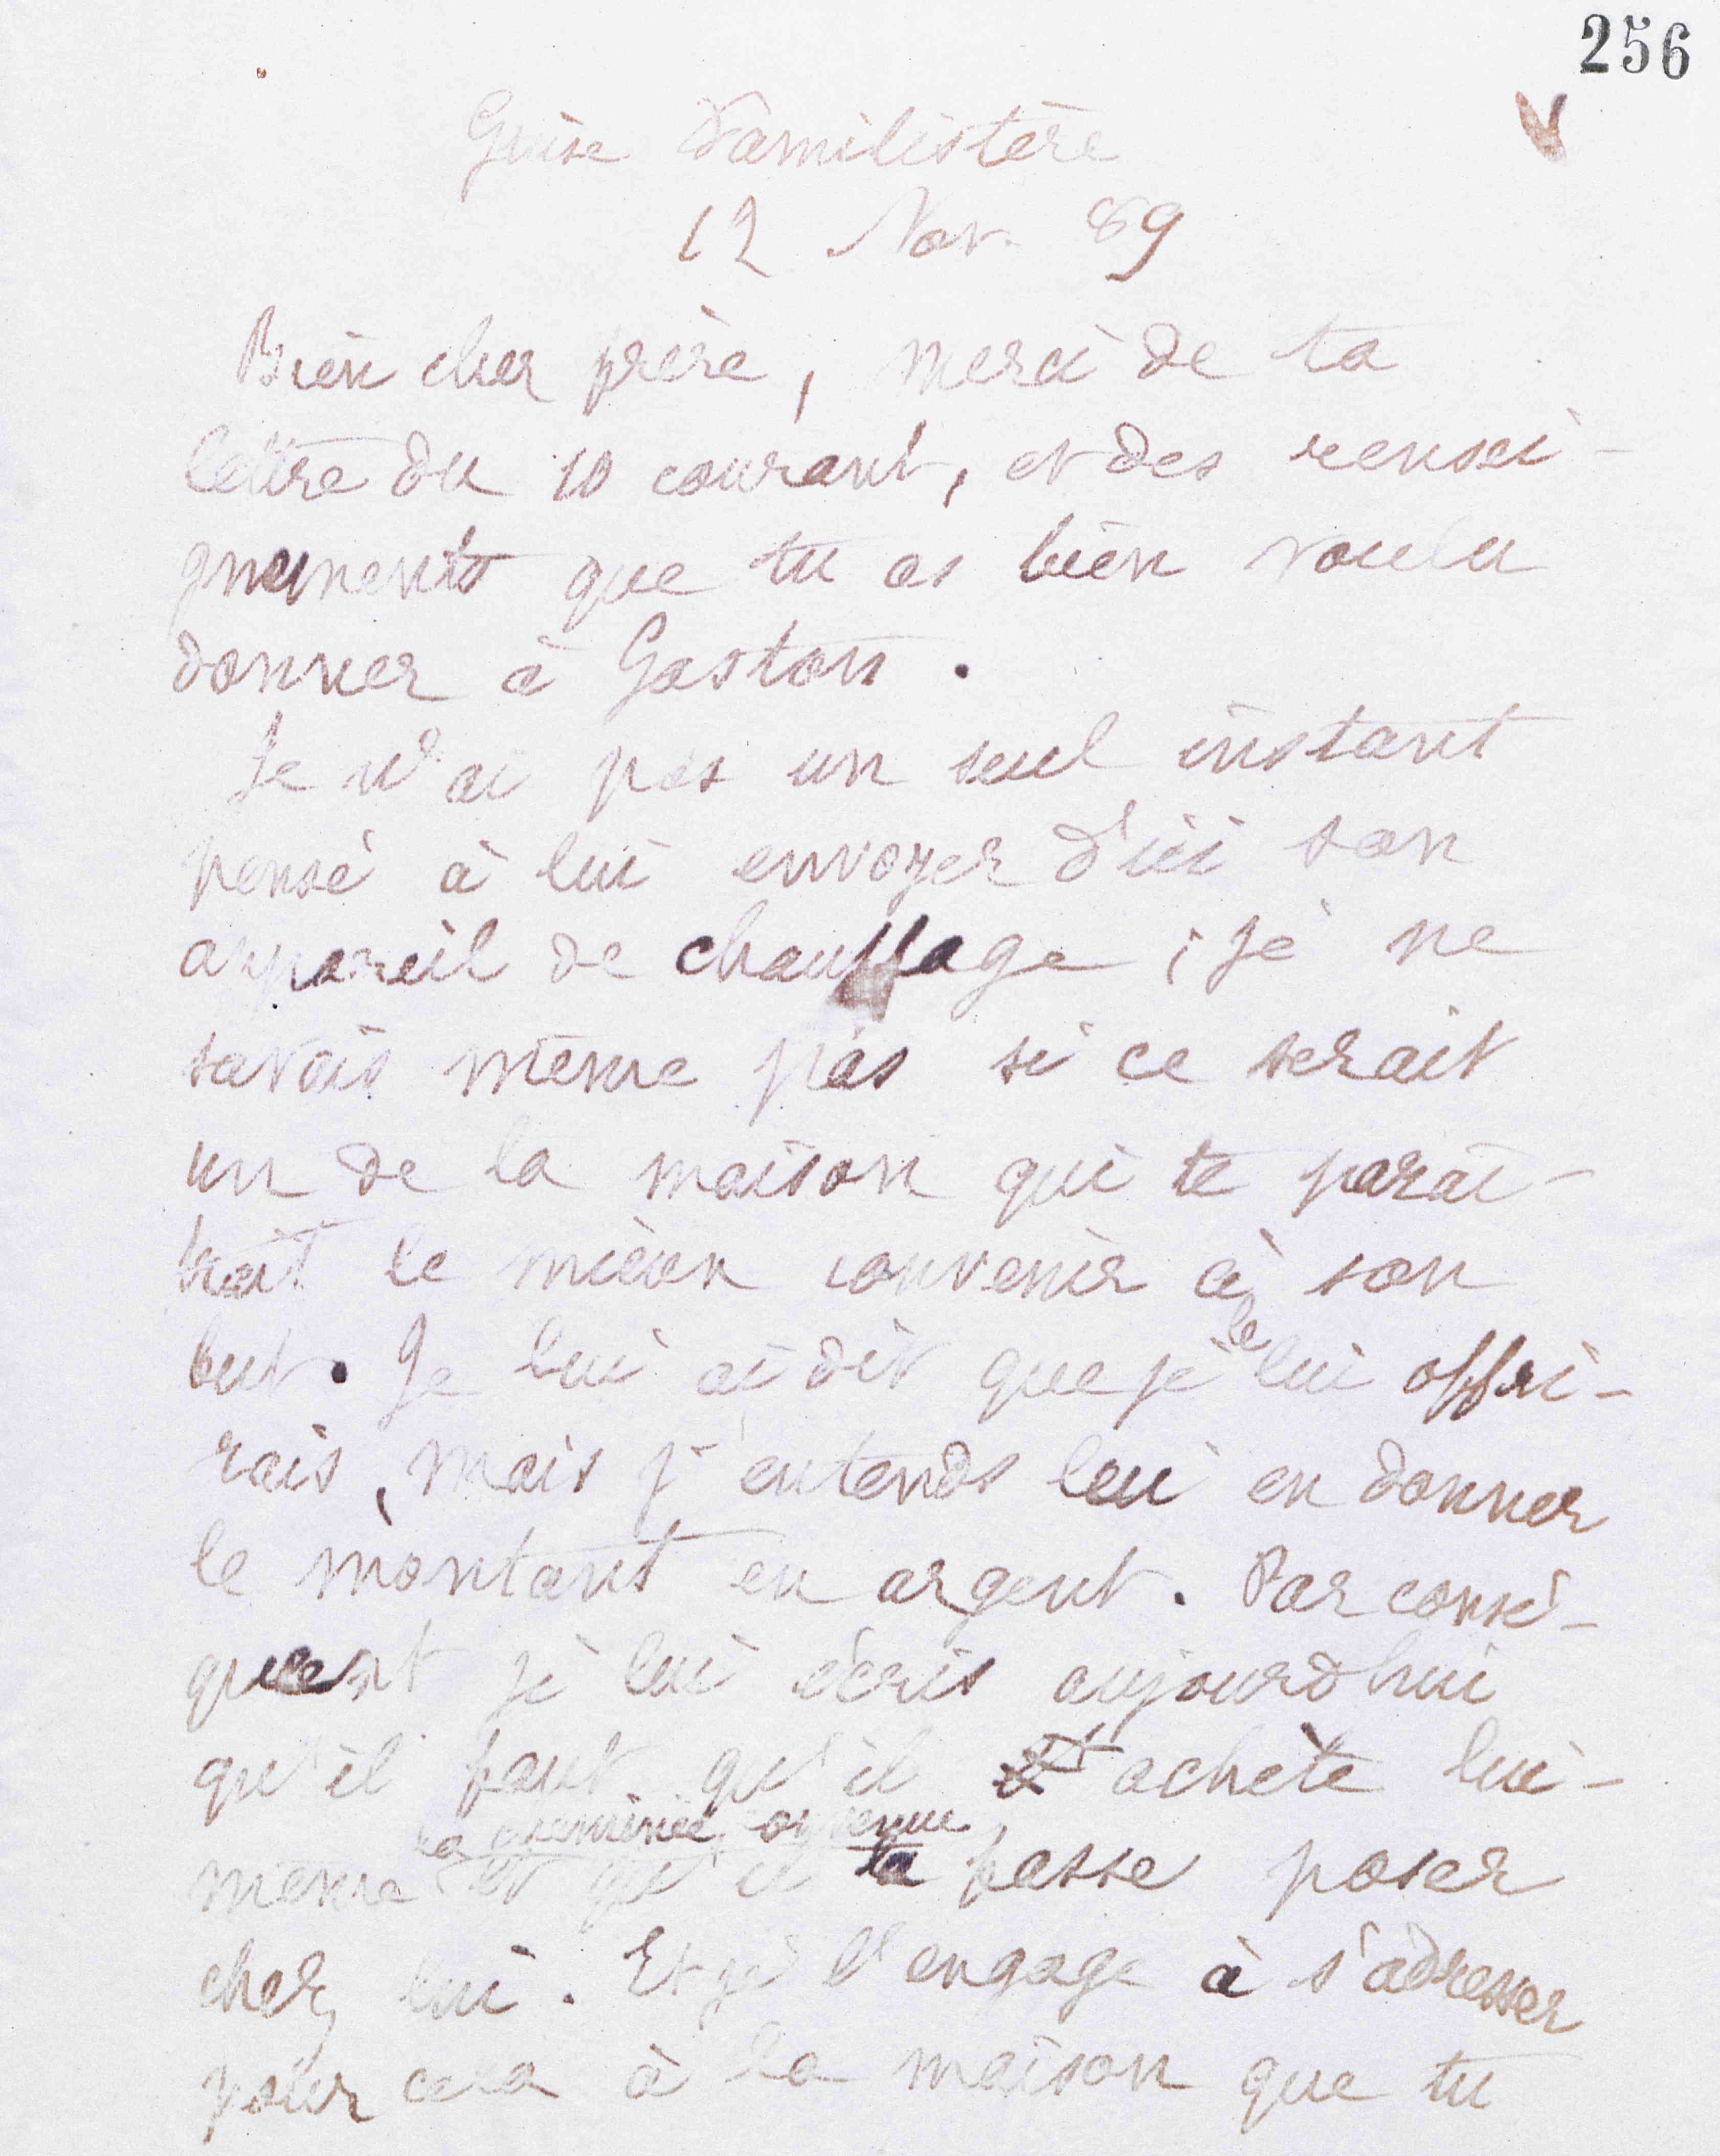 256
Guise Familistère
12 Nov. 89
Bien cher frère, merci de ta
lettre du 10 courant, et des rensei-
gnements que tu as bien voulu
donner à Gaston.
Je n'ai pas un seul instant
pensé à lui envoyer d'ici son
appareil de chauffage ; je ne
savais même pas si ce serait
un de la maison qui te paraî-
trait le mieux convenir à son
but. Je lui ai dit que je le lui offri-
rais, mais j'entends lui en donner
le montant en argent. Par consé-
quent je lui écris aujourd'hui
qu'il faut qu'il achète lui-
la cheminée
même et qu'il la fasse poser
chez lui. Et je l'engage à s'adresser
pour cela à la maison que tu